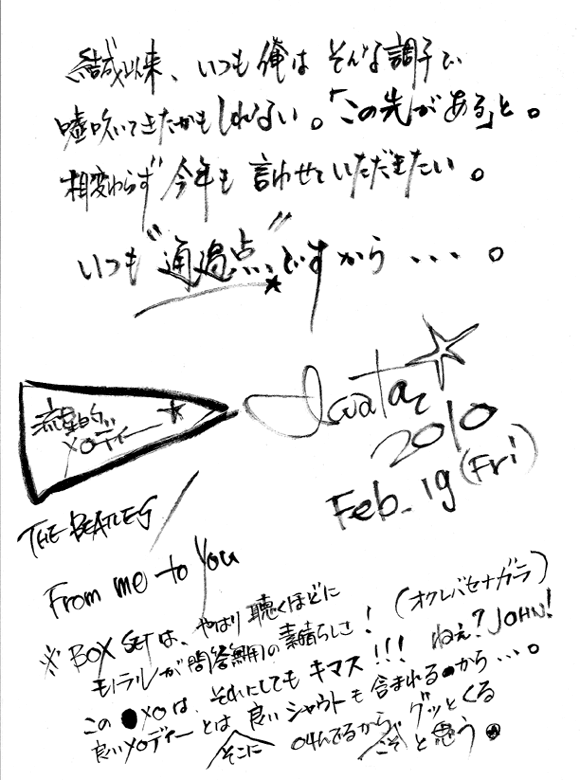 結成以来、いつも俺はそんな調子で
嘘吹いてきたかもしれない。「この先がある」と。
相変わらず今年も言わせていただきたい。
いつも“通過点”ですから・・・。
流星的
メロディー★
Iwata
2010
Feb. 19 (Fri)
THE BEATLES /
From me to You
※BOX SETは、やはり聴くほどに (オクレバセナガラ)
モノラルが問答無用の素晴らしさ! ねぇ?JOHN!
この●メロは、それにしてもキマス!!!
良いメロディーとは良いシャウトも含まれるから・・・。
そこに 叫んでるからこそグッとくる
と思う。